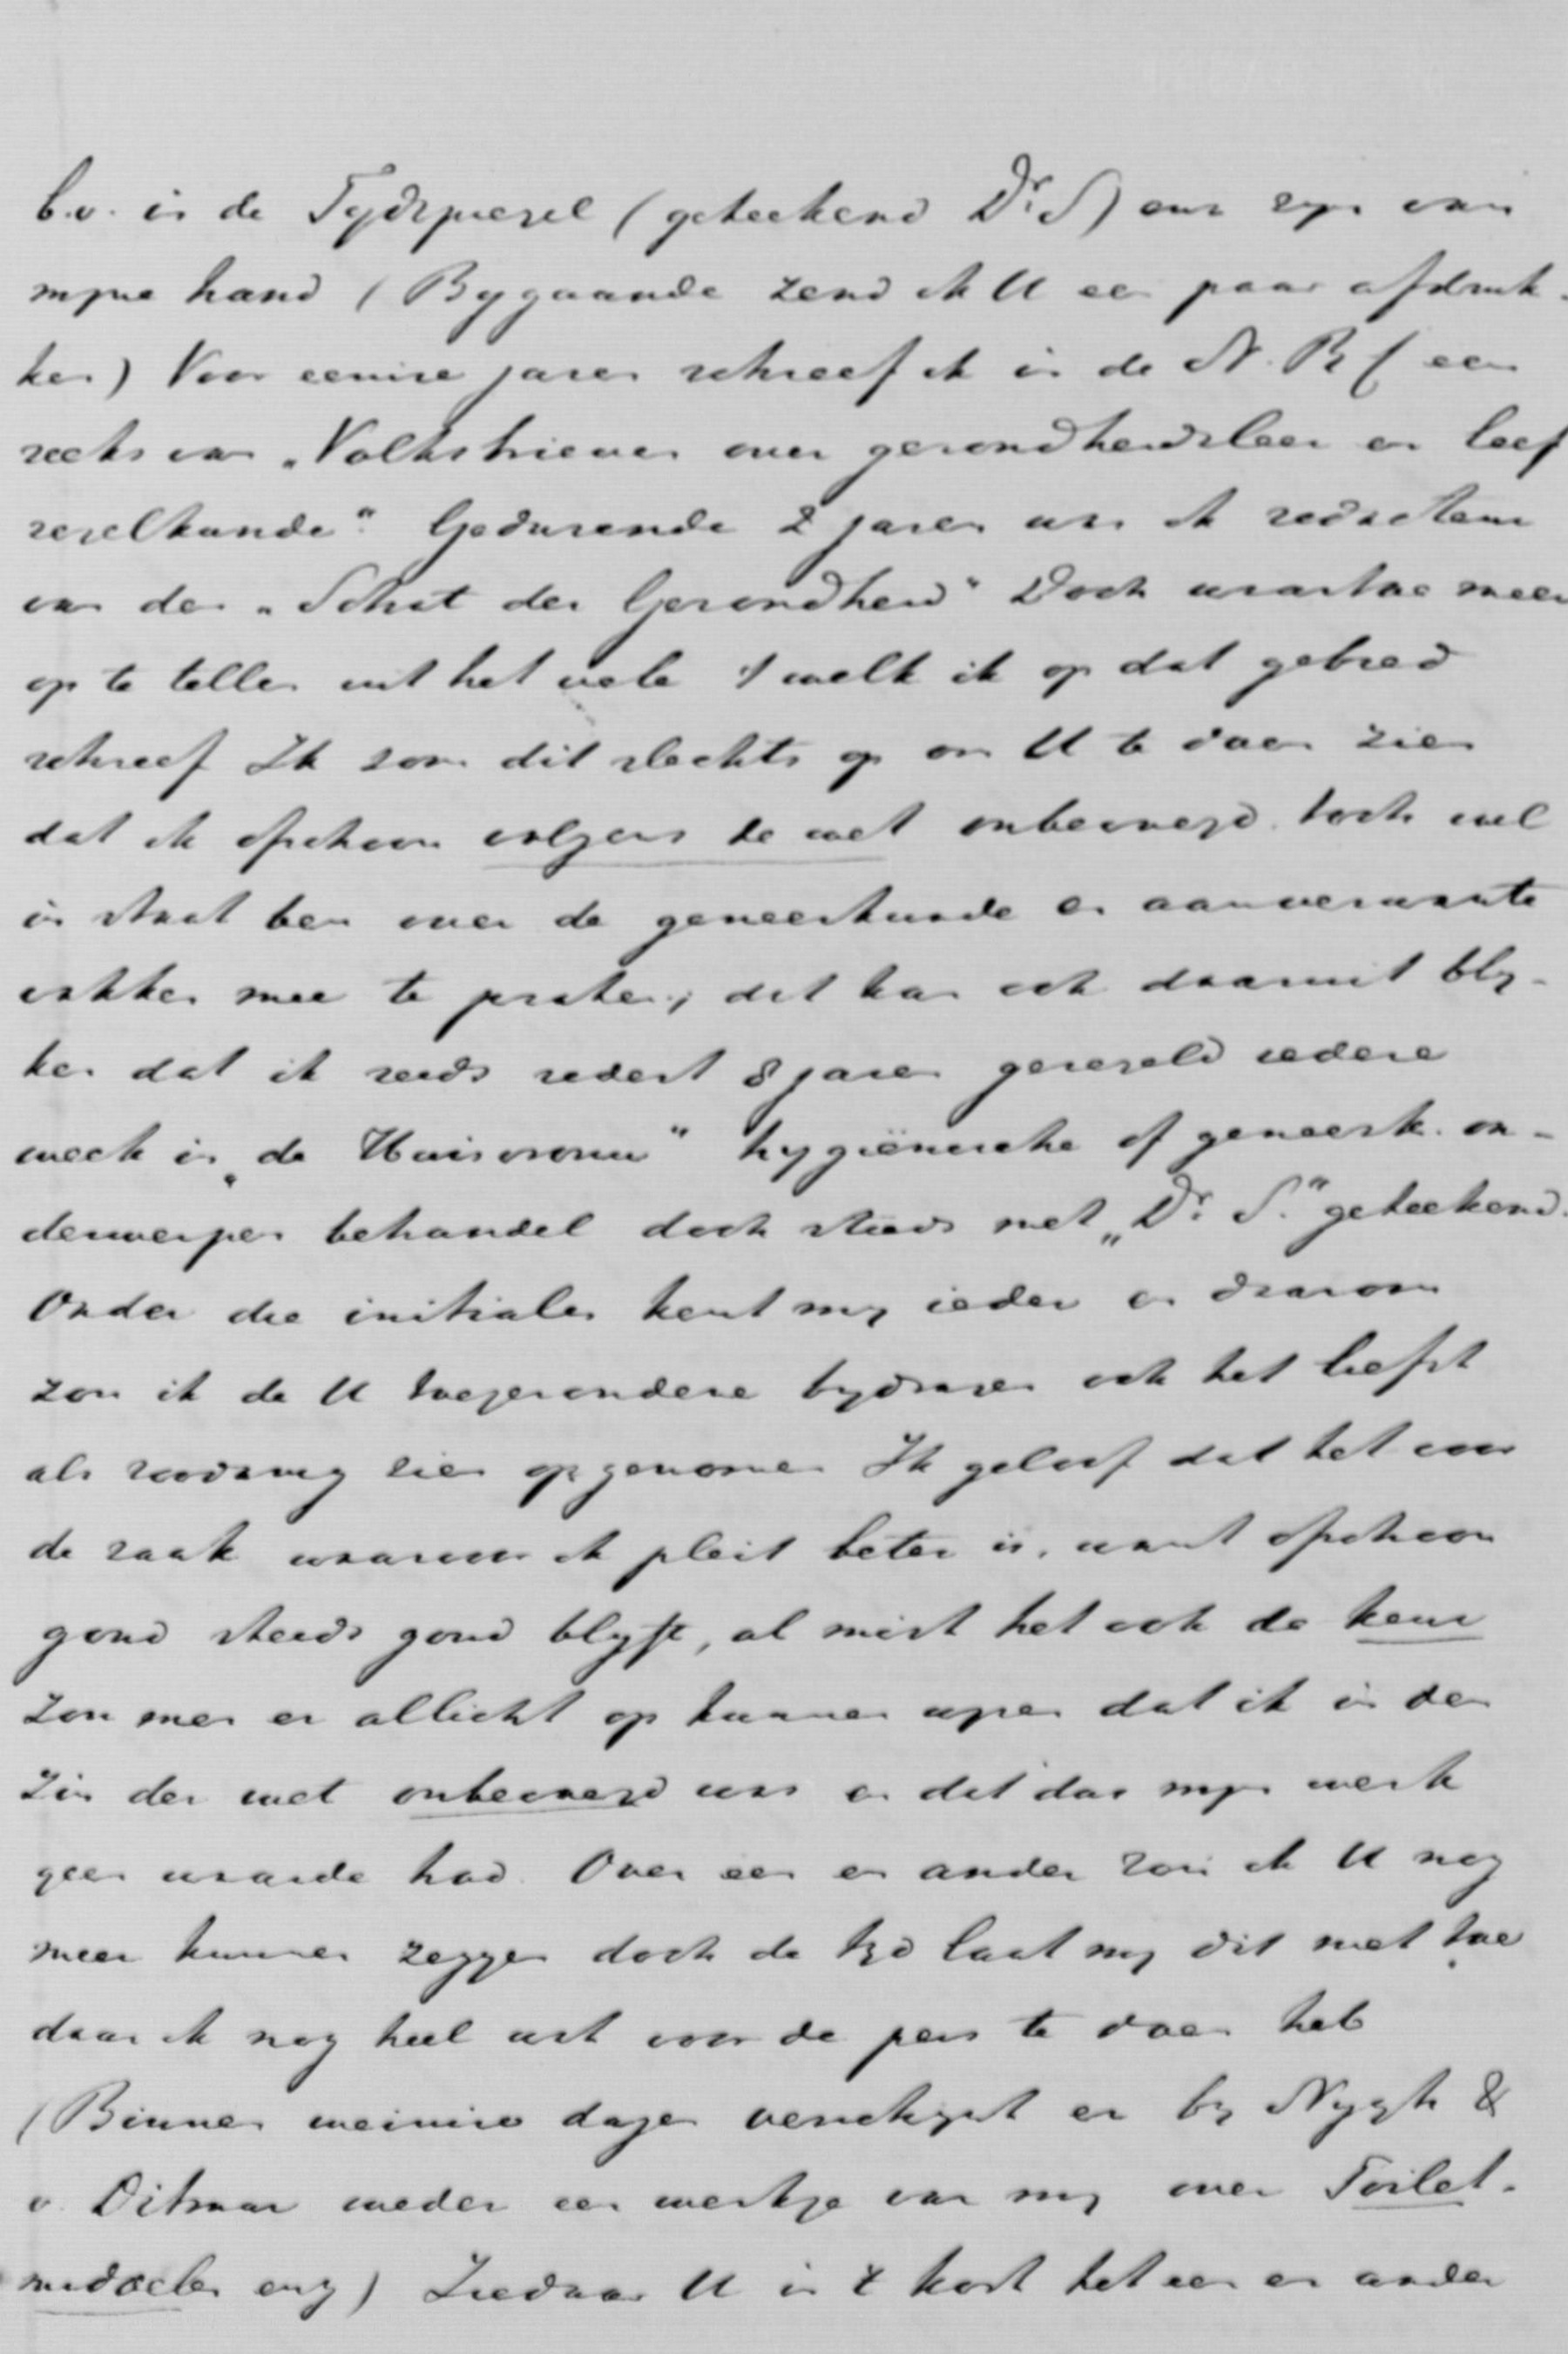 b.v. in de Tydspiegel (geteekend Dr. S) ens zyn van
myne hand (Bygaande zend ik U een paar afdruk-
ken) Voor eenige jaren schreef ik in de N. R C een
reeks van „Volksbrieven over gezondheidsleer en leef
regelkunde". Gedurende 2 jaren was ik redacteur
van den „Schat der Gezondheid" Doch waartoe meer
op te tellen uit het vele 't welk ik op dat gebied
schreef Ik som dit slechts op om U te doen zien
dat ik ofschoon volgens de wet onbevoegd toch wel
in staat ben over de geneeskunde en aanverwante
vakken mee te praten; dit kan ook daaruit bly-
ken dat ik reeds sedert 8 jaren geregeld iedere
week in „de Huisvrouw" hygiënische of geneesk. on-
derwerpen behandel doch steeds met „Dr. S." geteekend.
Onder die initialen kent my ieder en daarom
zou ik de U toegezondene bydragen ook het liefst
als zoodanig zien opgenomen Ik geloof dat het voor
de zaak waarvoor ik pleit beter is, want ofschoon
goud steeds goud blyft, al mist het ook de keur
zou men er allicht op kunnen wyzen dat ik in den
zin der wet onbevoegd was en dat dus myn werk
geen waarde had. Over een en ander zou ik U nog
meer kunnen zeggen doch de tyd laat my dit niet toe
daar ik nog heel wat voor de pers te doen heb
(Binnen weinige dagen verschynt er by Nygh &
v. Ditmar weder een werkje van my over Toilet-
middelen enz) Ziedaar U in 't kort het een en ander